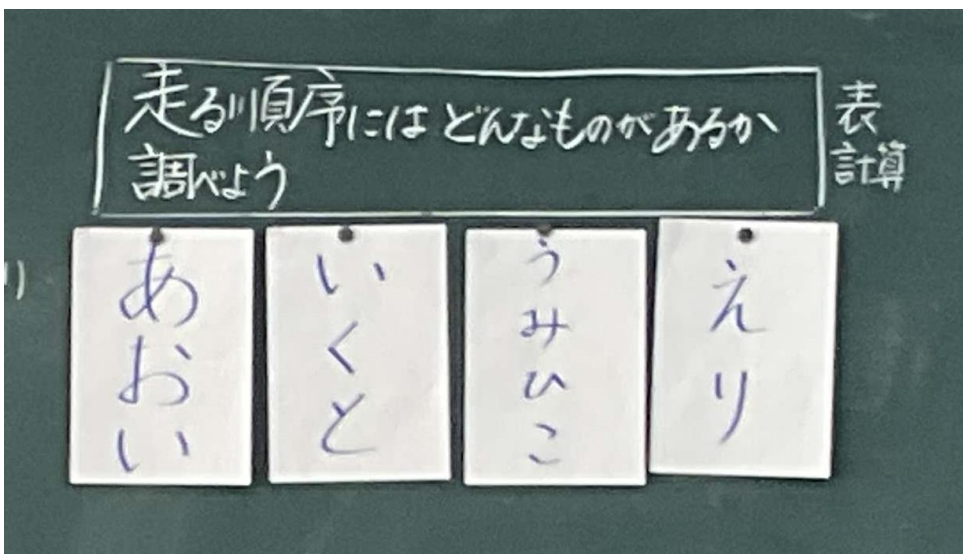 走る順序にはどんなものがあるか
調べよう
表
計算
あおい
いくと
うみひこ
えり